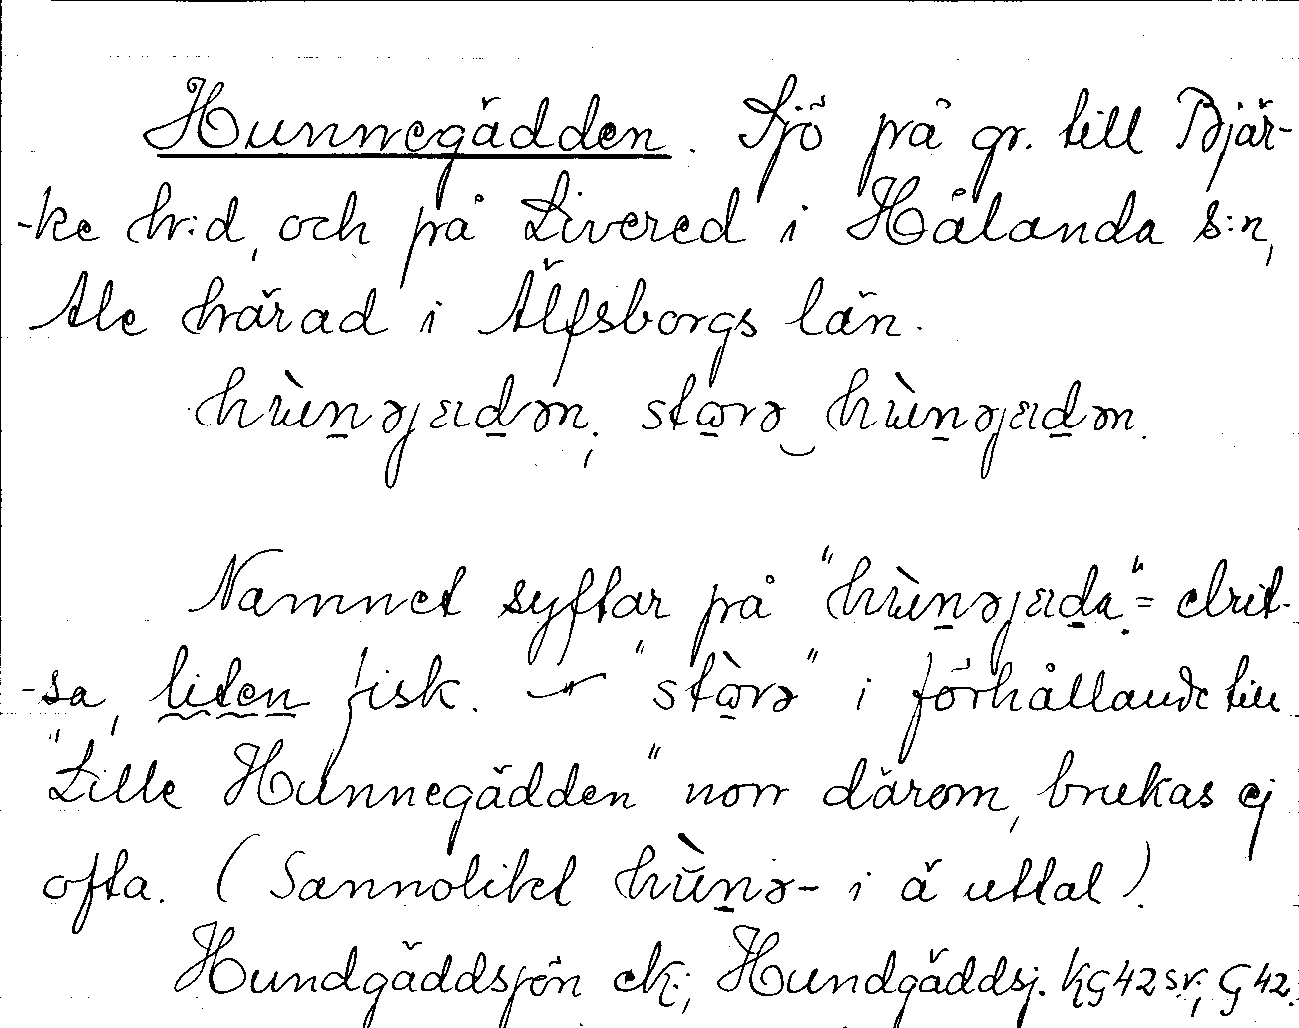 Hunnegädden. Sjö på gr. till Bjär-
-ke h:d, och på Livered i Hålanda s:n,
Ale härad i Älfsborgs län.
hùn̲əjɛd̲ən; stɷ̲rə‿hùn̲əjɛd̲ən.
Namnet syftar på "hùn̲əjɛd̲a" = elrit-
-sa, liten fisk. — "stɷ̲̀rə" i förhållande till
"Lille Hunnegädden" norr därom, brukas ej
ofta. (Sannolikt hùn̲ə- i ä uttal).
Hundgäddsjön ek.; Hundgäddsj. KG42sv; G42.